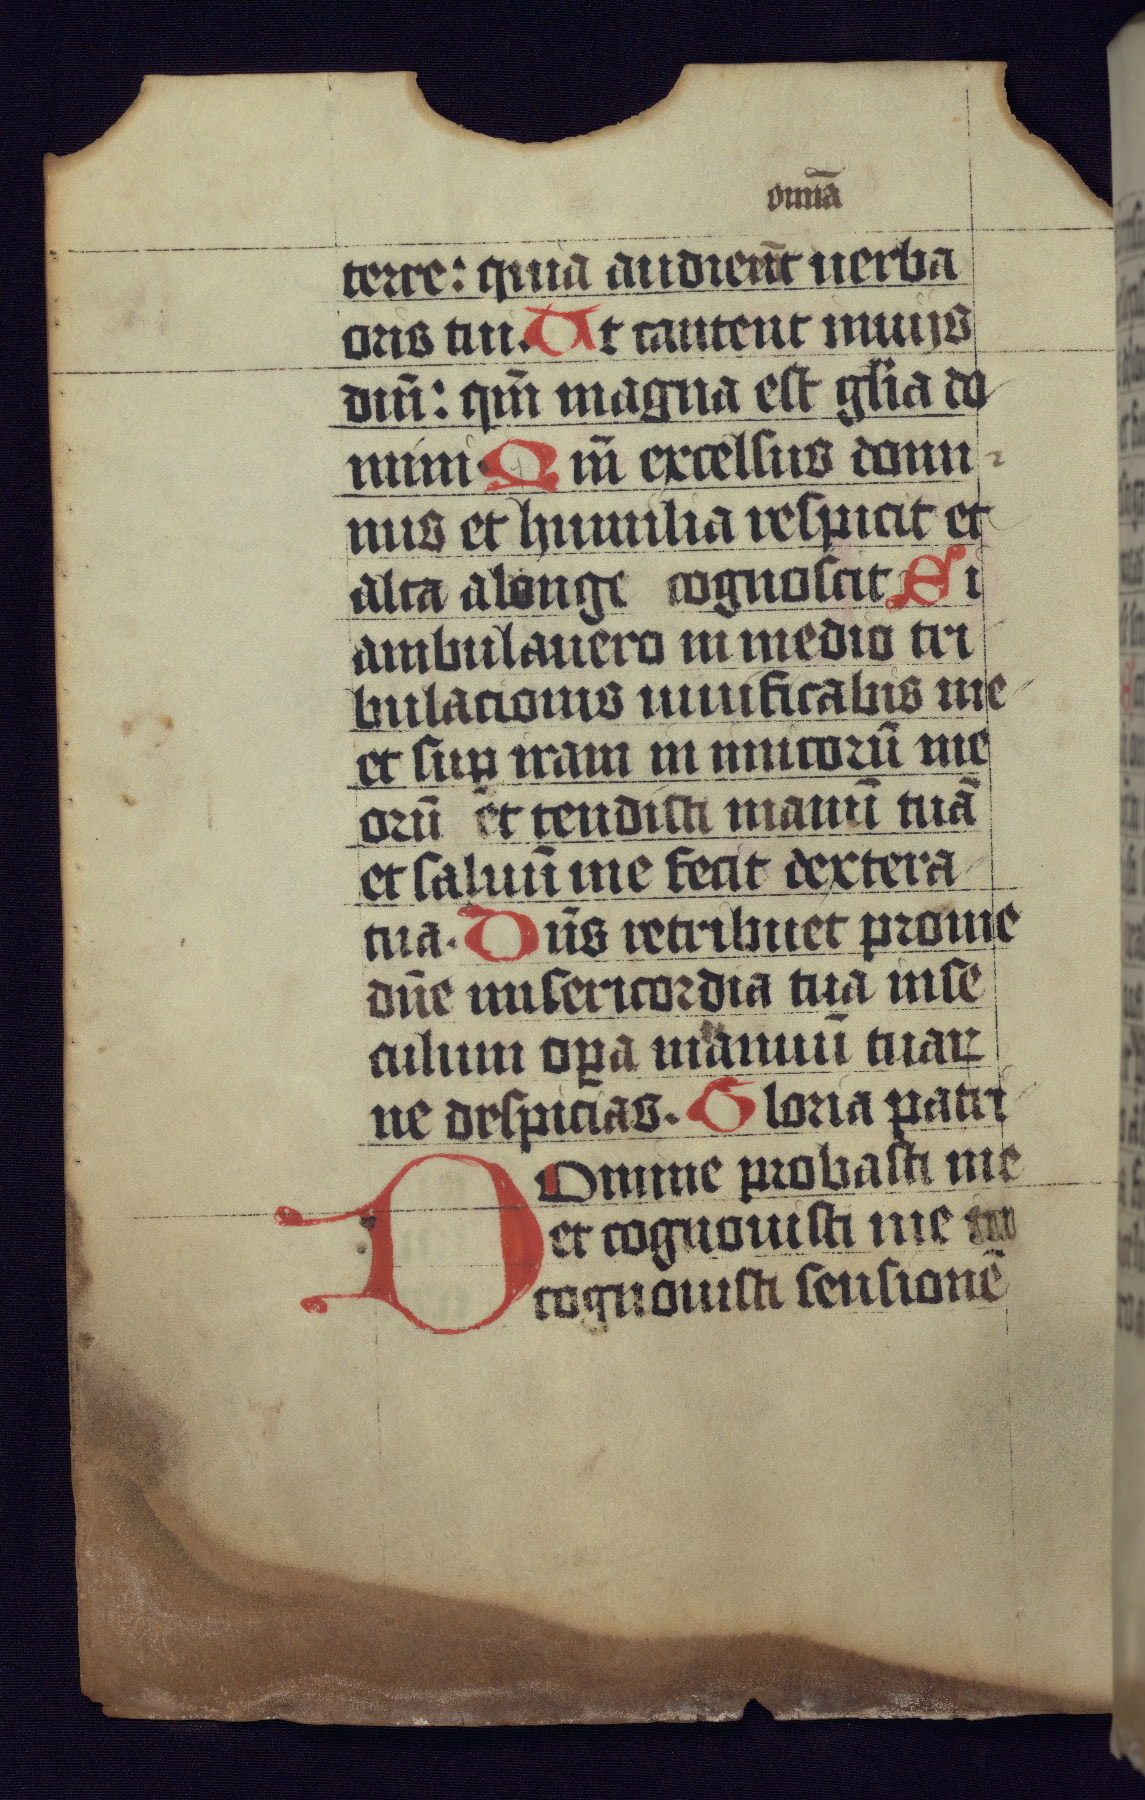 om̄ia
terre: quia audieru̅t uerba
oris tui. Et cantent inuijs
dn̄i: qm̄ magna est gl̄ia do
mini. Qm̄ excelsus domi
nus et humilia respicit et
alta alonge cognoscit Si
ambulauero in medio tri
bulacionis uiuificabis me
et suꝑ iram in imicorū me
orū et tendisti manū tuā
et saluū me fecit dextera
tua. Dn̄s retribuet pro me
dn̄e misericordia tua in se
culum oꝑa manuū tuaꝝ
ne despicias. Gloria patri
Domine probasti me
et cognouisti me
cognouisti sensionē